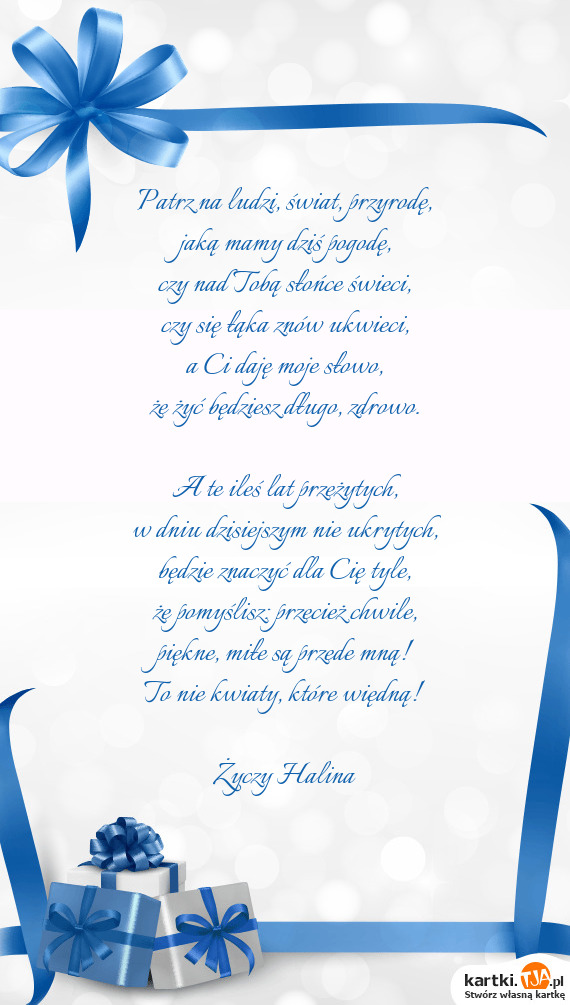 Patrz na ludzi, świat, przyrodę,
jaką mamy dziś pogodę,
czy nad Tobą słońce świeci,
czy się łąka znów ukwieci,
a Ci daję moje słowo,
że żyć będziesz długo, zdrowo.
A te ileś lat przeżytych,
w dniu dzisiejszym nie ukrytych,
będzie znaczyć dla Cię tyle,
że pomyślisz: przecież chwile,
piękne, miłe są przede mną!
To nie kwiaty, które więdną!
Życzy Halina
kartki.TJA.pl
Stwórz własną kartkę